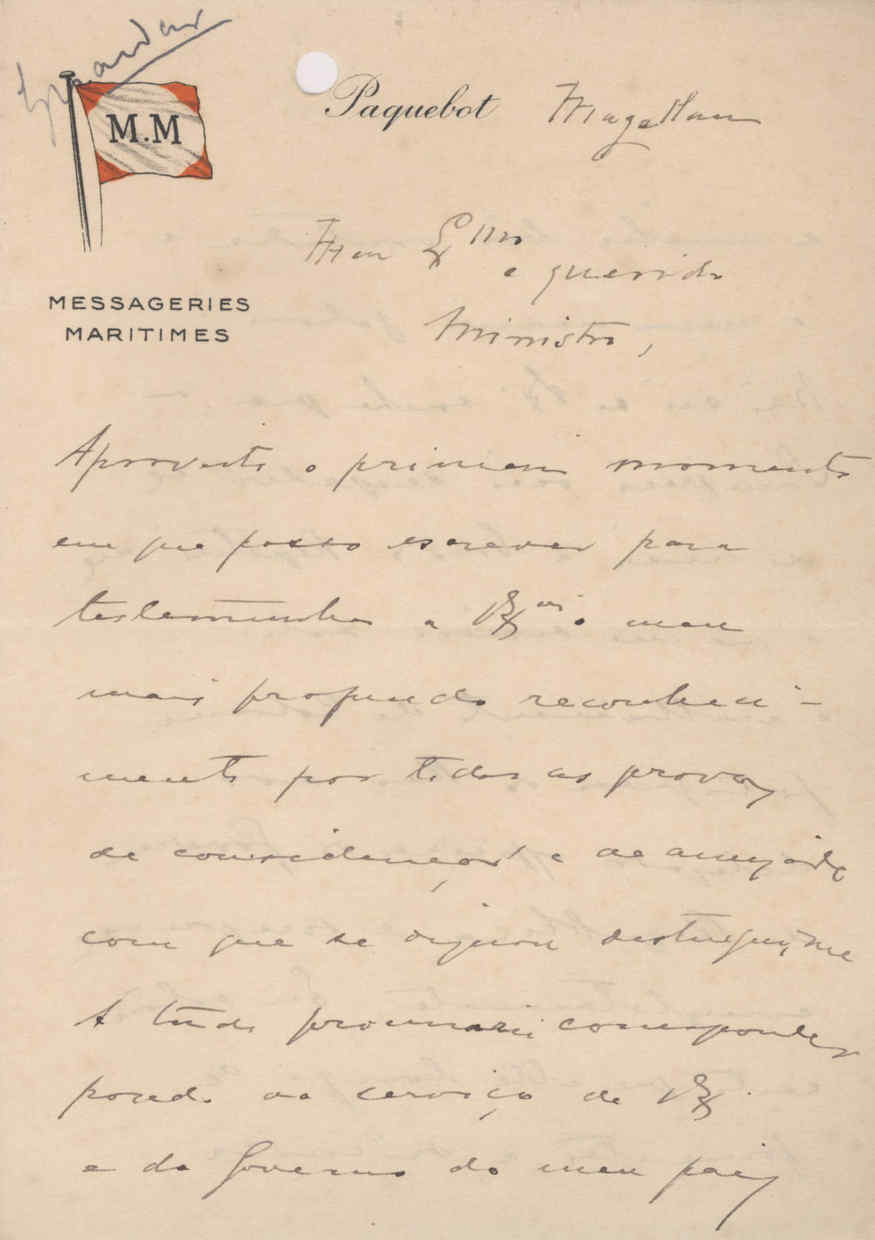 Guardar
M.M
Paquebot Magellan
MESSAGERIES
MARITIMES
Meu Exmo
e querido
Ministro,
Aproveito o primeiro momento
em que posso escrever para
testemunhar a VExª o meu
mais profundo reconheci-
mento por todas as provas
de consideração e de amizade
com que se dignou distinguir-me
A tudo procurarei corresponder
pondo ao serviço de VEx.
e do Governo do meu paiz